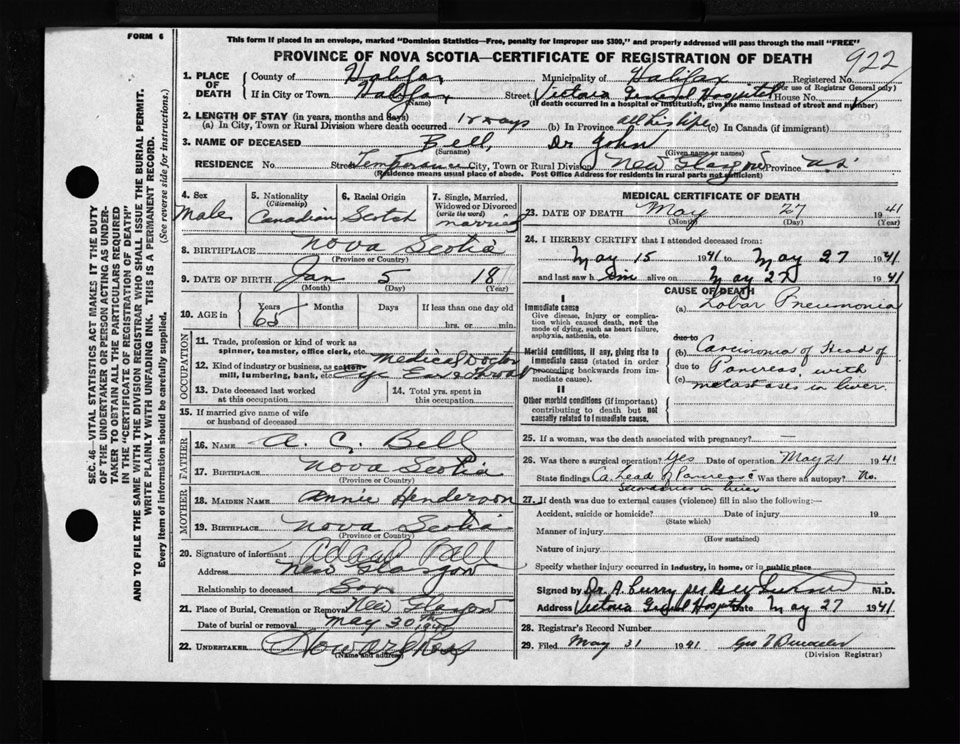 FORM 6
This form if placed in an envelope, marked "Dominion Statistics—Free, penalty for improper use $300," and properly addressed will pass through the mail "FREE"
PROVINCE OF NOVA SCOTIA—CERTIFICATE OF REGISTRATION OF DEATH
922
1. PLACE OF DEATH
County of Halifax Municipality of Halifax Registered No.
(For use of Registrar General only)
If in City or Town Halifax Street Victoria General Hospital House No.
(Name) (If death occurred in a hospital or institution, give the name instead of street and number)
2. LENGTH OF STAY (in years, months and days)
(a) In City, Town or Rural Division where death occurred 12 days (b) In Province all his life (c) In Canada (if immigrant)
3. NAME OF DECEASED Bell, Dr John
(Surname) (Given name or names)
RESIDENCE No. Street Temperance City, Town or Rural Division New Glasgow Province N.S.
(Residence means usual place of abode. Post Office Address for residents in rural parts not sufficient)
4. Sex
Male
5. Nationality
(Citizenship)
Canadian
6. Racial Origin
Scotch
7. Single, Married, Widowed or Divorced
(write the word)
married
8. BIRTHPLACE Nova Scotia
(Province or Country)
9. DATE OF BIRTH Jan 5 18
(Month) (Day) (Year)
10. AGE in
Years Months Days If less than one day old
65 hrs. or min.
OCCUPATION
11. Trade, profession or kind of work as spinner, teamster, office clerk, etc. Medical Doctor
12. Kind of industry or business, as cotton mill, lumbering, bank, etc. Eye Ear & Throat
13. Date deceased last worked at this occupation
14. Total yrs. spent in this occupation
15. If married give name of wife or husband of deceased
FATHER
16. NAME A. C. Bell
17. BIRTHPLACE Nova Scotia
(Province or Country)
MOTHER
18. MAIDEN NAME Annie Henderson
19. BIRTHPLACE Nova Scotia
(Province or Country)
20. Signature of informant Adam Bell
Address New Glasgow
Relationship to deceased Son
21. Place of Burial, Cremation or Removal New Glasgow
Date of burial or removal May 30th 1941
22. UNDERTAKER
(Name and address)
MEDICAL CERTIFICATE OF DEATH
23. DATE OF DEATH May 27 1941
(Month) (Day) (Year)
24. I HEREBY CERTIFY that I attended deceased from:
May 15 1941 to May 27 1941
and last saw him alive on May 27 1941
CAUSE OF DEATH
I
Immediate cause
Give disease, injury or complication which caused death, not the mode of dying, such as heart failure, asphyxia, asthenia, etc.
(a) Lobar Pneumonia
due to
Morbid conditions, if any, giving rise to immediate cause (stated in order proceeding backwards from immediate cause).
(b) Carcinoma of Head of
due to Pancreas with
(c) metastases in liver.
II
Other morbid conditions (if important) contributing to death but not causally related to immediate cause.
25. If a woman, was the death associated with pregnancy? —
26. Was there a surgical operation? Yes Date of operation May 21 1941
State findings Ca. head of Pancreas & Was there an autopsy? No.
Secondaries in liver
27. If death was due to external causes (violence) fill in also the following:—
Accident, suicide or homicide? Date of injury 19
(State which)
Manner of injury
(How sustained)
Nature of injury
Specify whether injury occurred in industry, in home, or in public place
Signed by Dr. A. Curry per M.D.
Address Victoria General Hospital Date May 27 1941.
28. Registrar's Record Number
29. Filed May 31 1941
(Division Registrar)
SEC. 46—VITAL STATISTICS ACT MAKES IT THE DUTY
OF THE UNDERTAKER OR PERSON ACTING AS UNDER-
TAKER TO OBTAIN ALL THE PARTICULARS REQUIRED
IN THE "CERTIFICATE OF REGISTRATION OF DEATH"
AND TO FILE THE SAME WITH THE DIVISION REGISTRAR WHO SHALL ISSUE THE BURIAL PERMIT.
WRITE PLAINLY WITH UNFADING INK. THIS IS A PERMANENT RECORD.
Every item of information should be carefully supplied. (See reverse side for instructions.)